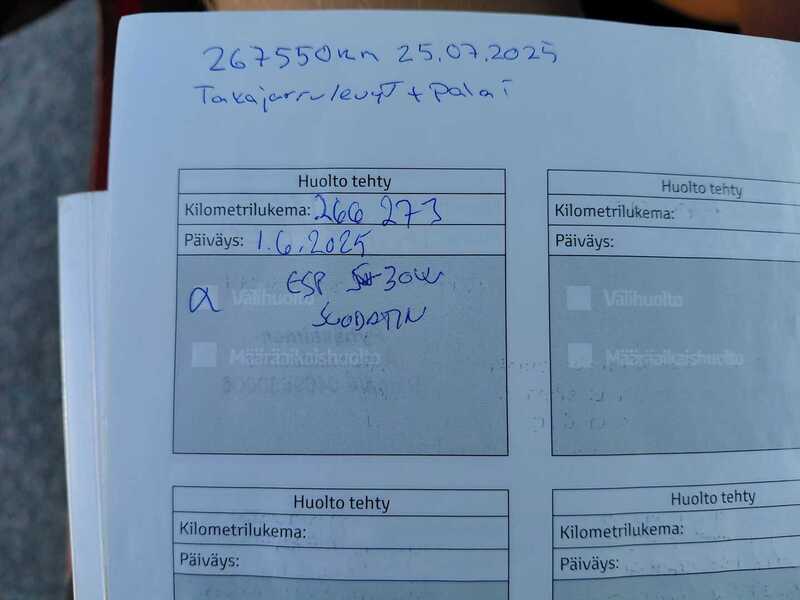 267550km 25.07.2025
Takajarrulevyt + palat
Huolto tehty
Kilometrilukema: 266 273
Päiväys: 1.6.2025
ESP 5-30W
a Välihuolto
SUODATIN
Määräaikaishuolto
Huolto tehty
Kilometrilukema:
Päiväys:
Välihuolto
Määräaikaishuolto
Huolto tehty
Kilometrilukema:
Päiväys:
Huolto tehty
Kilometrilukema:
Päiväys: